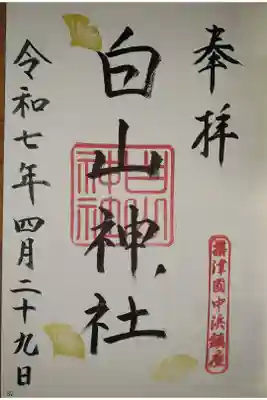 奉拝
攝津國中浜鎮座
白山神社
白山神社
令和七年四月二十九日